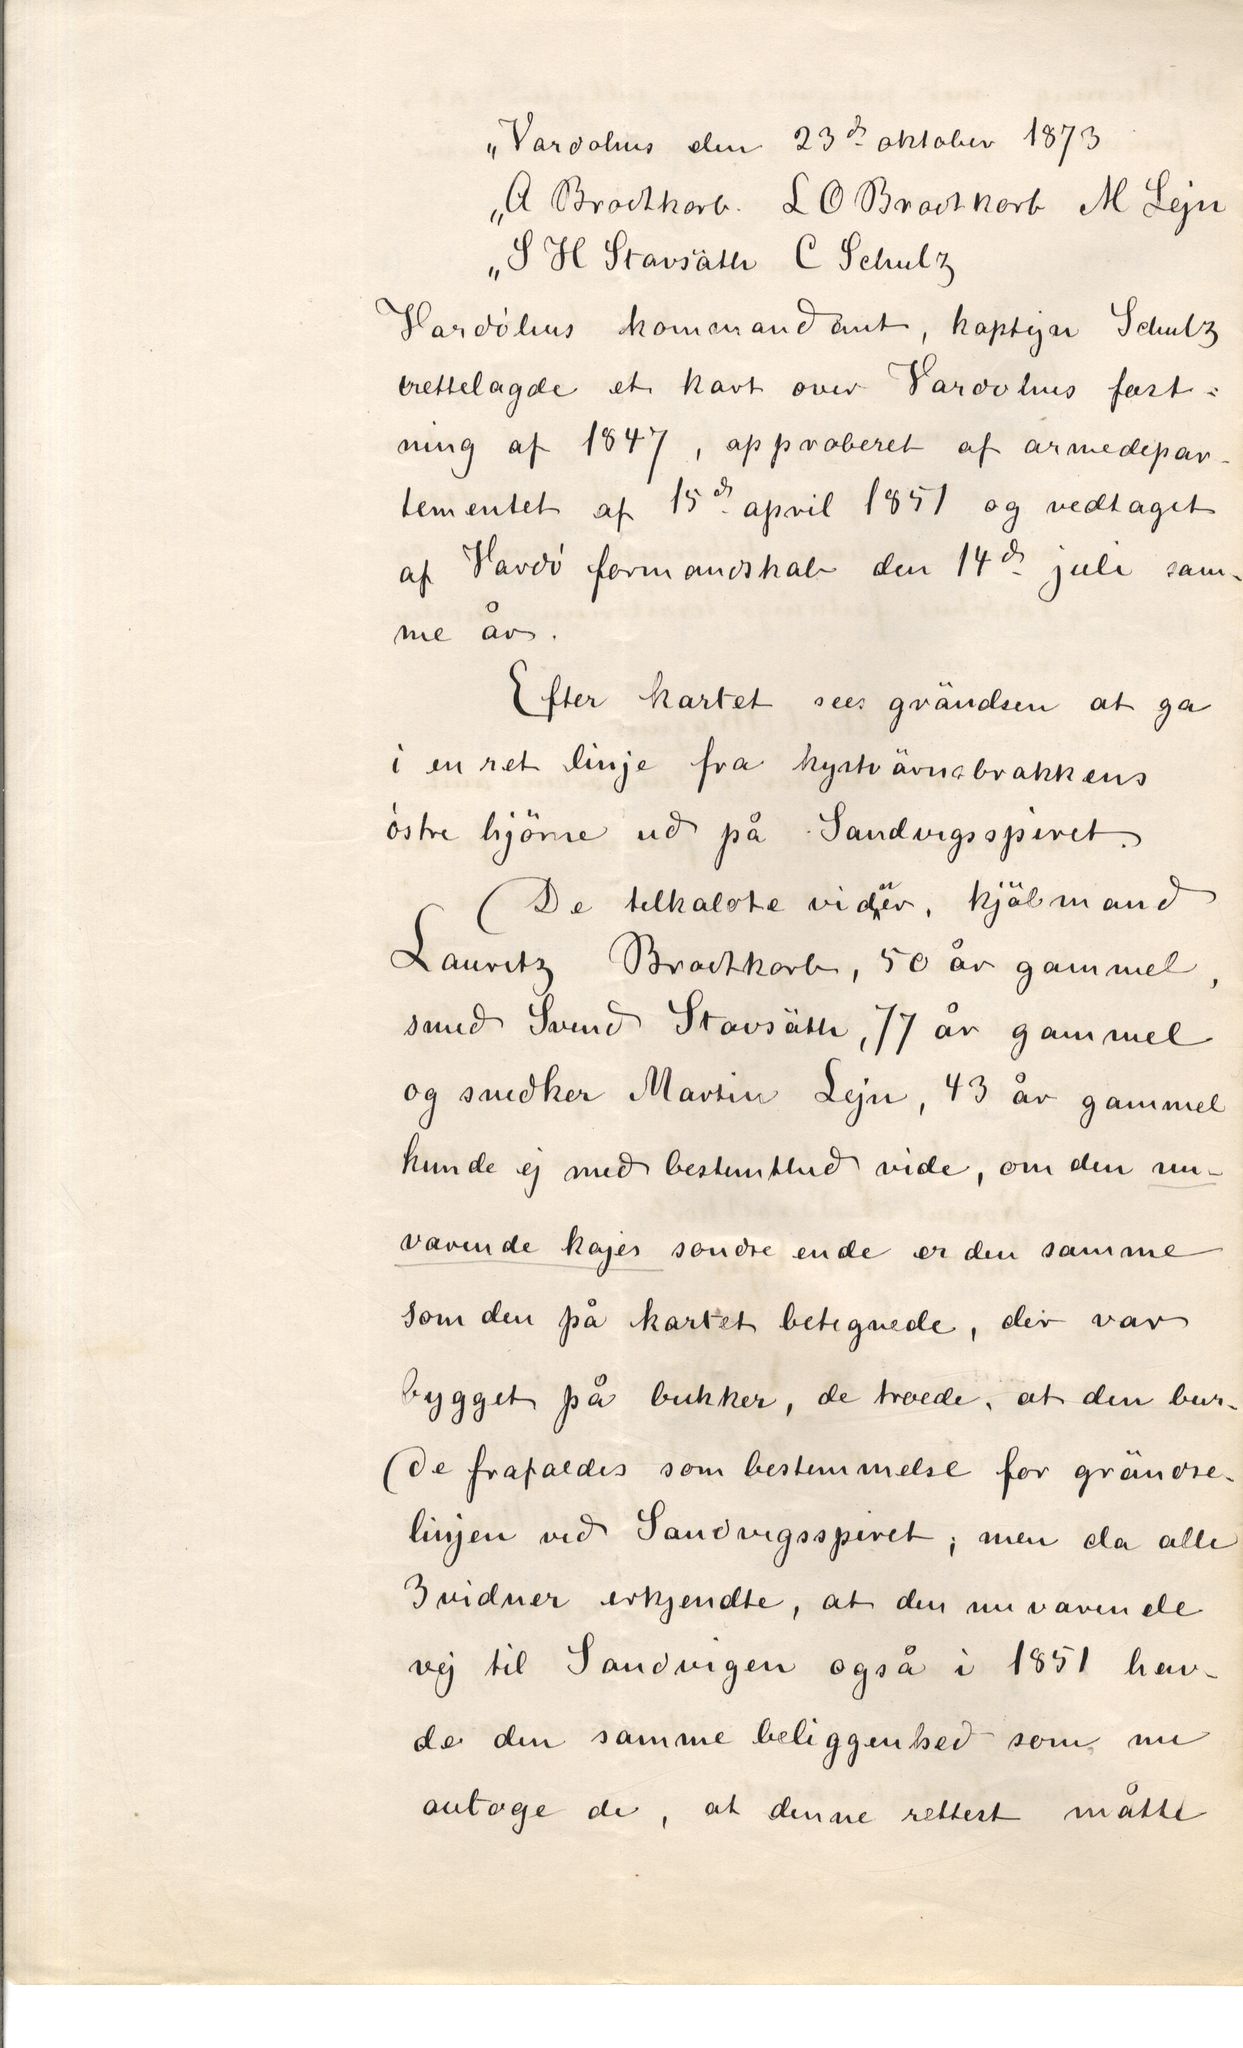 „Vardøhus den 23de oktober 1873
„A Brodtkorb. L O Brodtkorb M Lejn
„S H Stavsäth C Schulz
Vardøhus kommandant, kaptejn Schulz
rettelagde et kart over Vardøhus fæst-
ning af 1847, approberet af armedepar-
tementet af 15de april 1851 og vedtaget
af Vardö formandskab den 14de juli sam-
me år.
Efter kartet sees grändsen at ga
i en ret linje fra kystvärnsbrakkens
östre hjörne ud på Sandvigsspiret.
De tilkaldte vidner, kjöbmand
Lauritz Brodtkorb, 50 år gammel,
smed Svend Stavsäth, 77 år gammel
og snedker Martin Lejn, 43 år gammel
kunde ej med bestemthed vide, om den nu-
værende kajes sondre ende er den samme
som den på kartet betegnede, der var
bygget på bukker, de troede, at den bur-
de frafaldes som bestemmelse for grändse-
linjen ved Sandvigsspiret; men da alle
3 vidner erkjendte, at den nuværende
vej til Sandvigen også i 1851 hav-
de den samme beliggenhed som nu
antoge de, at denne rettest måtte